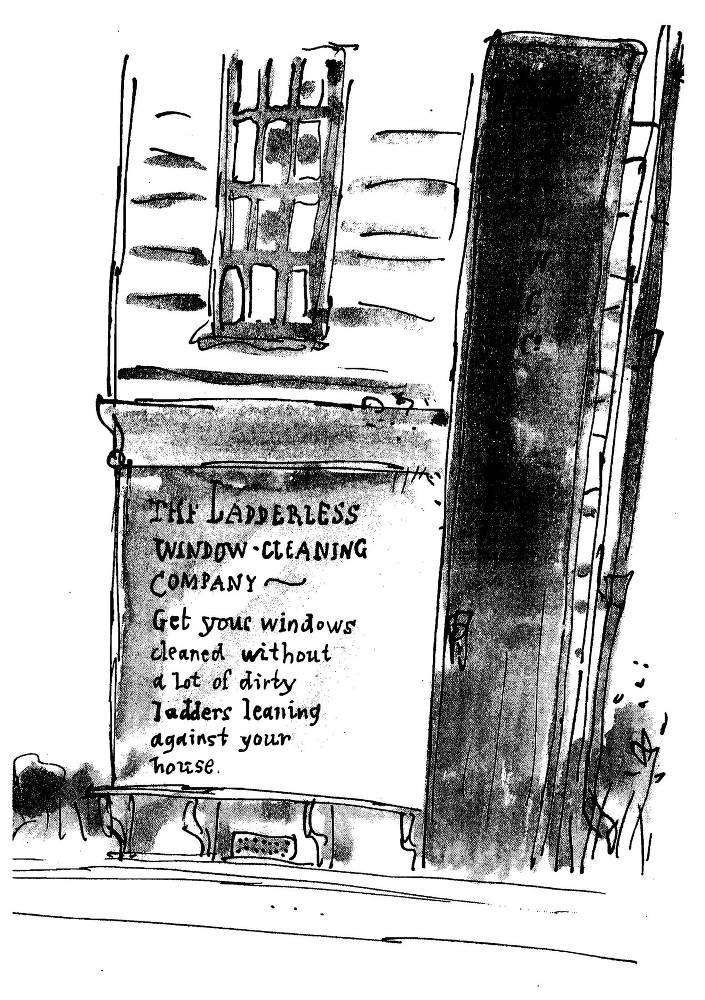 THE LADDERLESS
WINDOW-CLEANING
COMPANY
Get your windows
cleaned without
a lot of dirty
ladders leaning
against your
house.
L
W
C
C